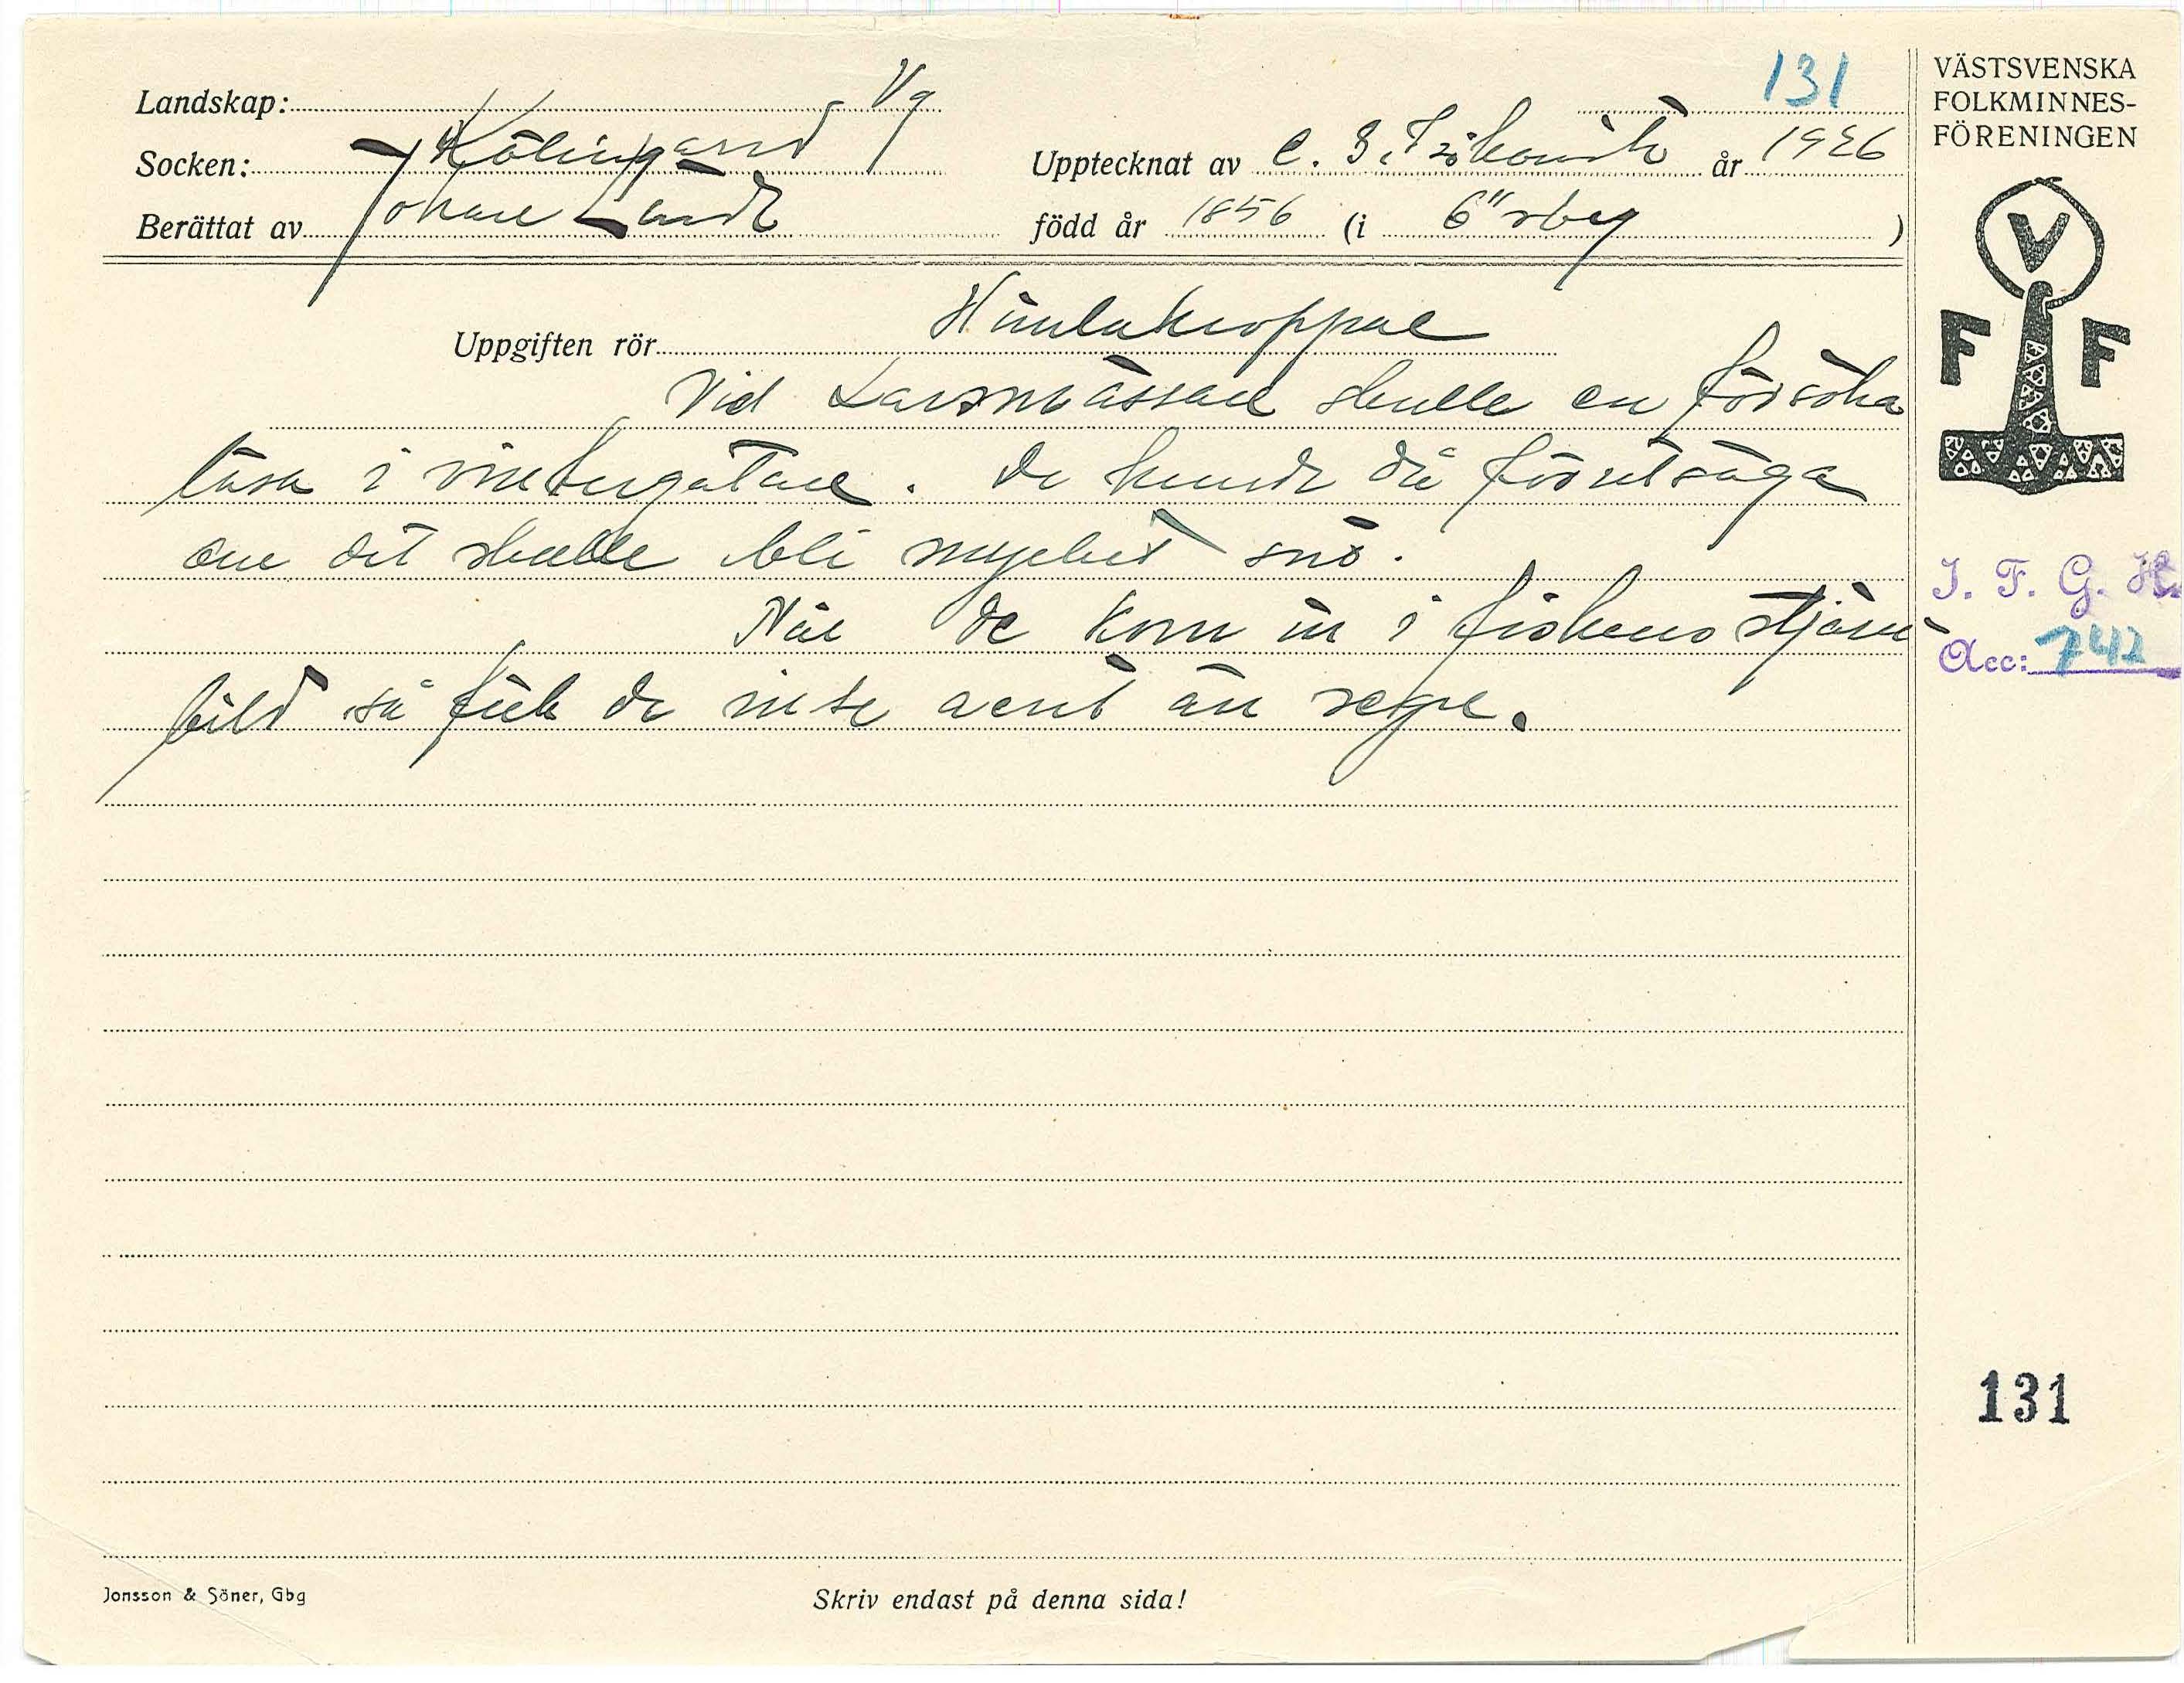 131
VÄSTSVENSKA
FOLKMINNES-
FÖRENINGEN
Landskap: Vg
Socken: Kölingared
Upptecknat av C. 1926
Berättat av Johan Landt född år 1856 (i Örby)
V
F F
Uppgiften rör Himlakroppar
Vid Larsmässan skulle en försöka
läsa i vintergatan. De kunde då förutsäga
om det skulle bli mycket snö.
När de kom in i fiskens stjärn
bild så fick de inte annt än regn.
I. F. G. H.
Acc: 742
131
Jonsson & Söner, Gbg
Skriv endast på denna sida!